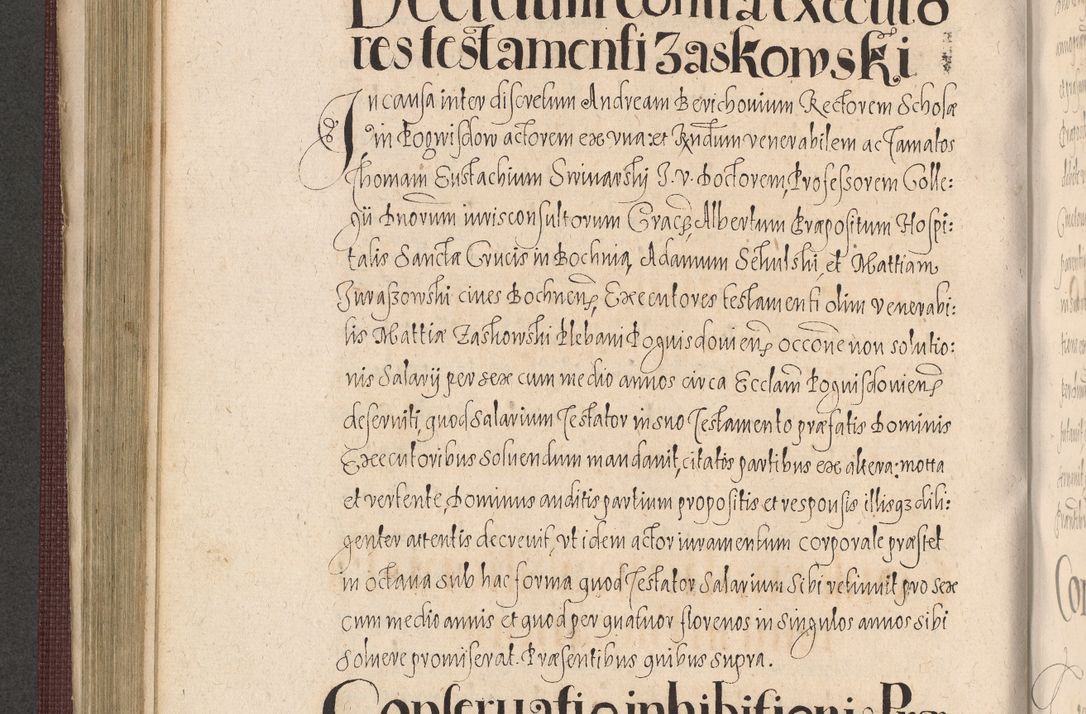 Decretum contra executo
res testamenti Zaskowski
In causa inter discretum Andream Berichovium Rectorem Scholæ
in Pogwisdow actorem ex una et Rndum venerabilem ac famatos
Thomam Eustachium Swinarski J. V. Doctorem, Professorem Colle:
gii Dnorum iurisconsultorum Crac, Albertum Præpositum Hospi:
talis Sanctæ Crucis in Bochnia, Adamum Schulski, et Mattiam
Juraszowski cives Bochnen, Executores testamenti olim venerabi:
lis Mattiæ Zaskowski Plebani Poguisdovien occone non solutio:
nis Salarij per sex cum medio annos circa Ecclam Poguisdovien
deserviti, quod Salarium Testator in suo Testamento præfatis Dominis
Executoribus solvendum mandavit, citatos partibus ex altera: motta
et vertente, Dominus auditis partium propositis et responsis illisq3 dili:
genter attentis decrevit, ut idem actor iuramentum corporale præstet
in octava sub hac forma quod Testator Salarium sibi retinuit pro sex
cum medio annis et quod per quatuor florenos in singulos annos sibi
solvere promiserat. Præsentibus quibus supra.
Conservatio inhibitionis Præ